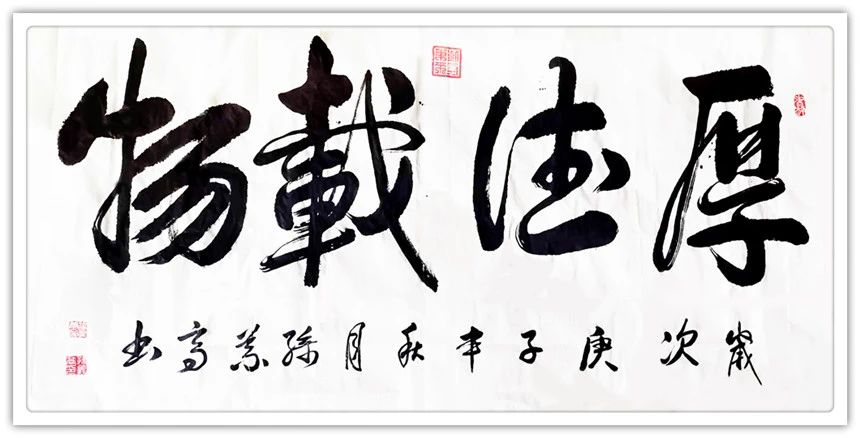 厚德載物
歲次庚子年秋月孫業高书